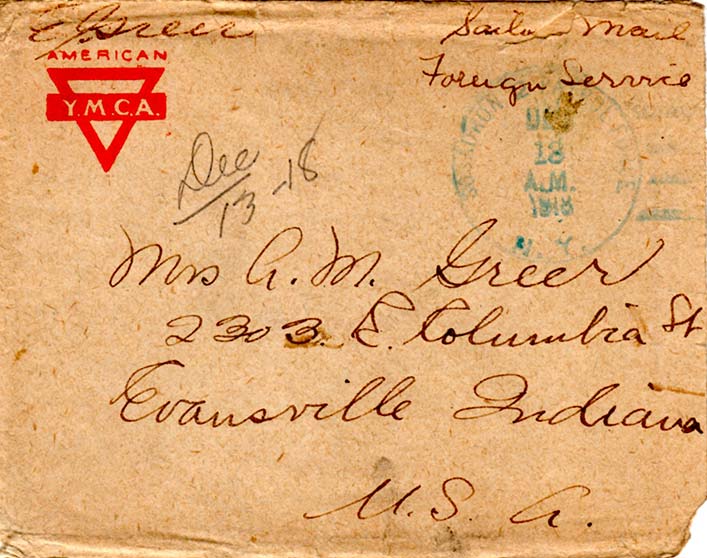 E Greer
Sailors Mail
Foreign Service
AMERICAN
Y.M.C.A.
DEC
18
A.M.
1918
N.Y.
Dec
13 -18
Mrs A. M. Greer
2303. E. Columbia St
Evansville Indiana
U. S. A.